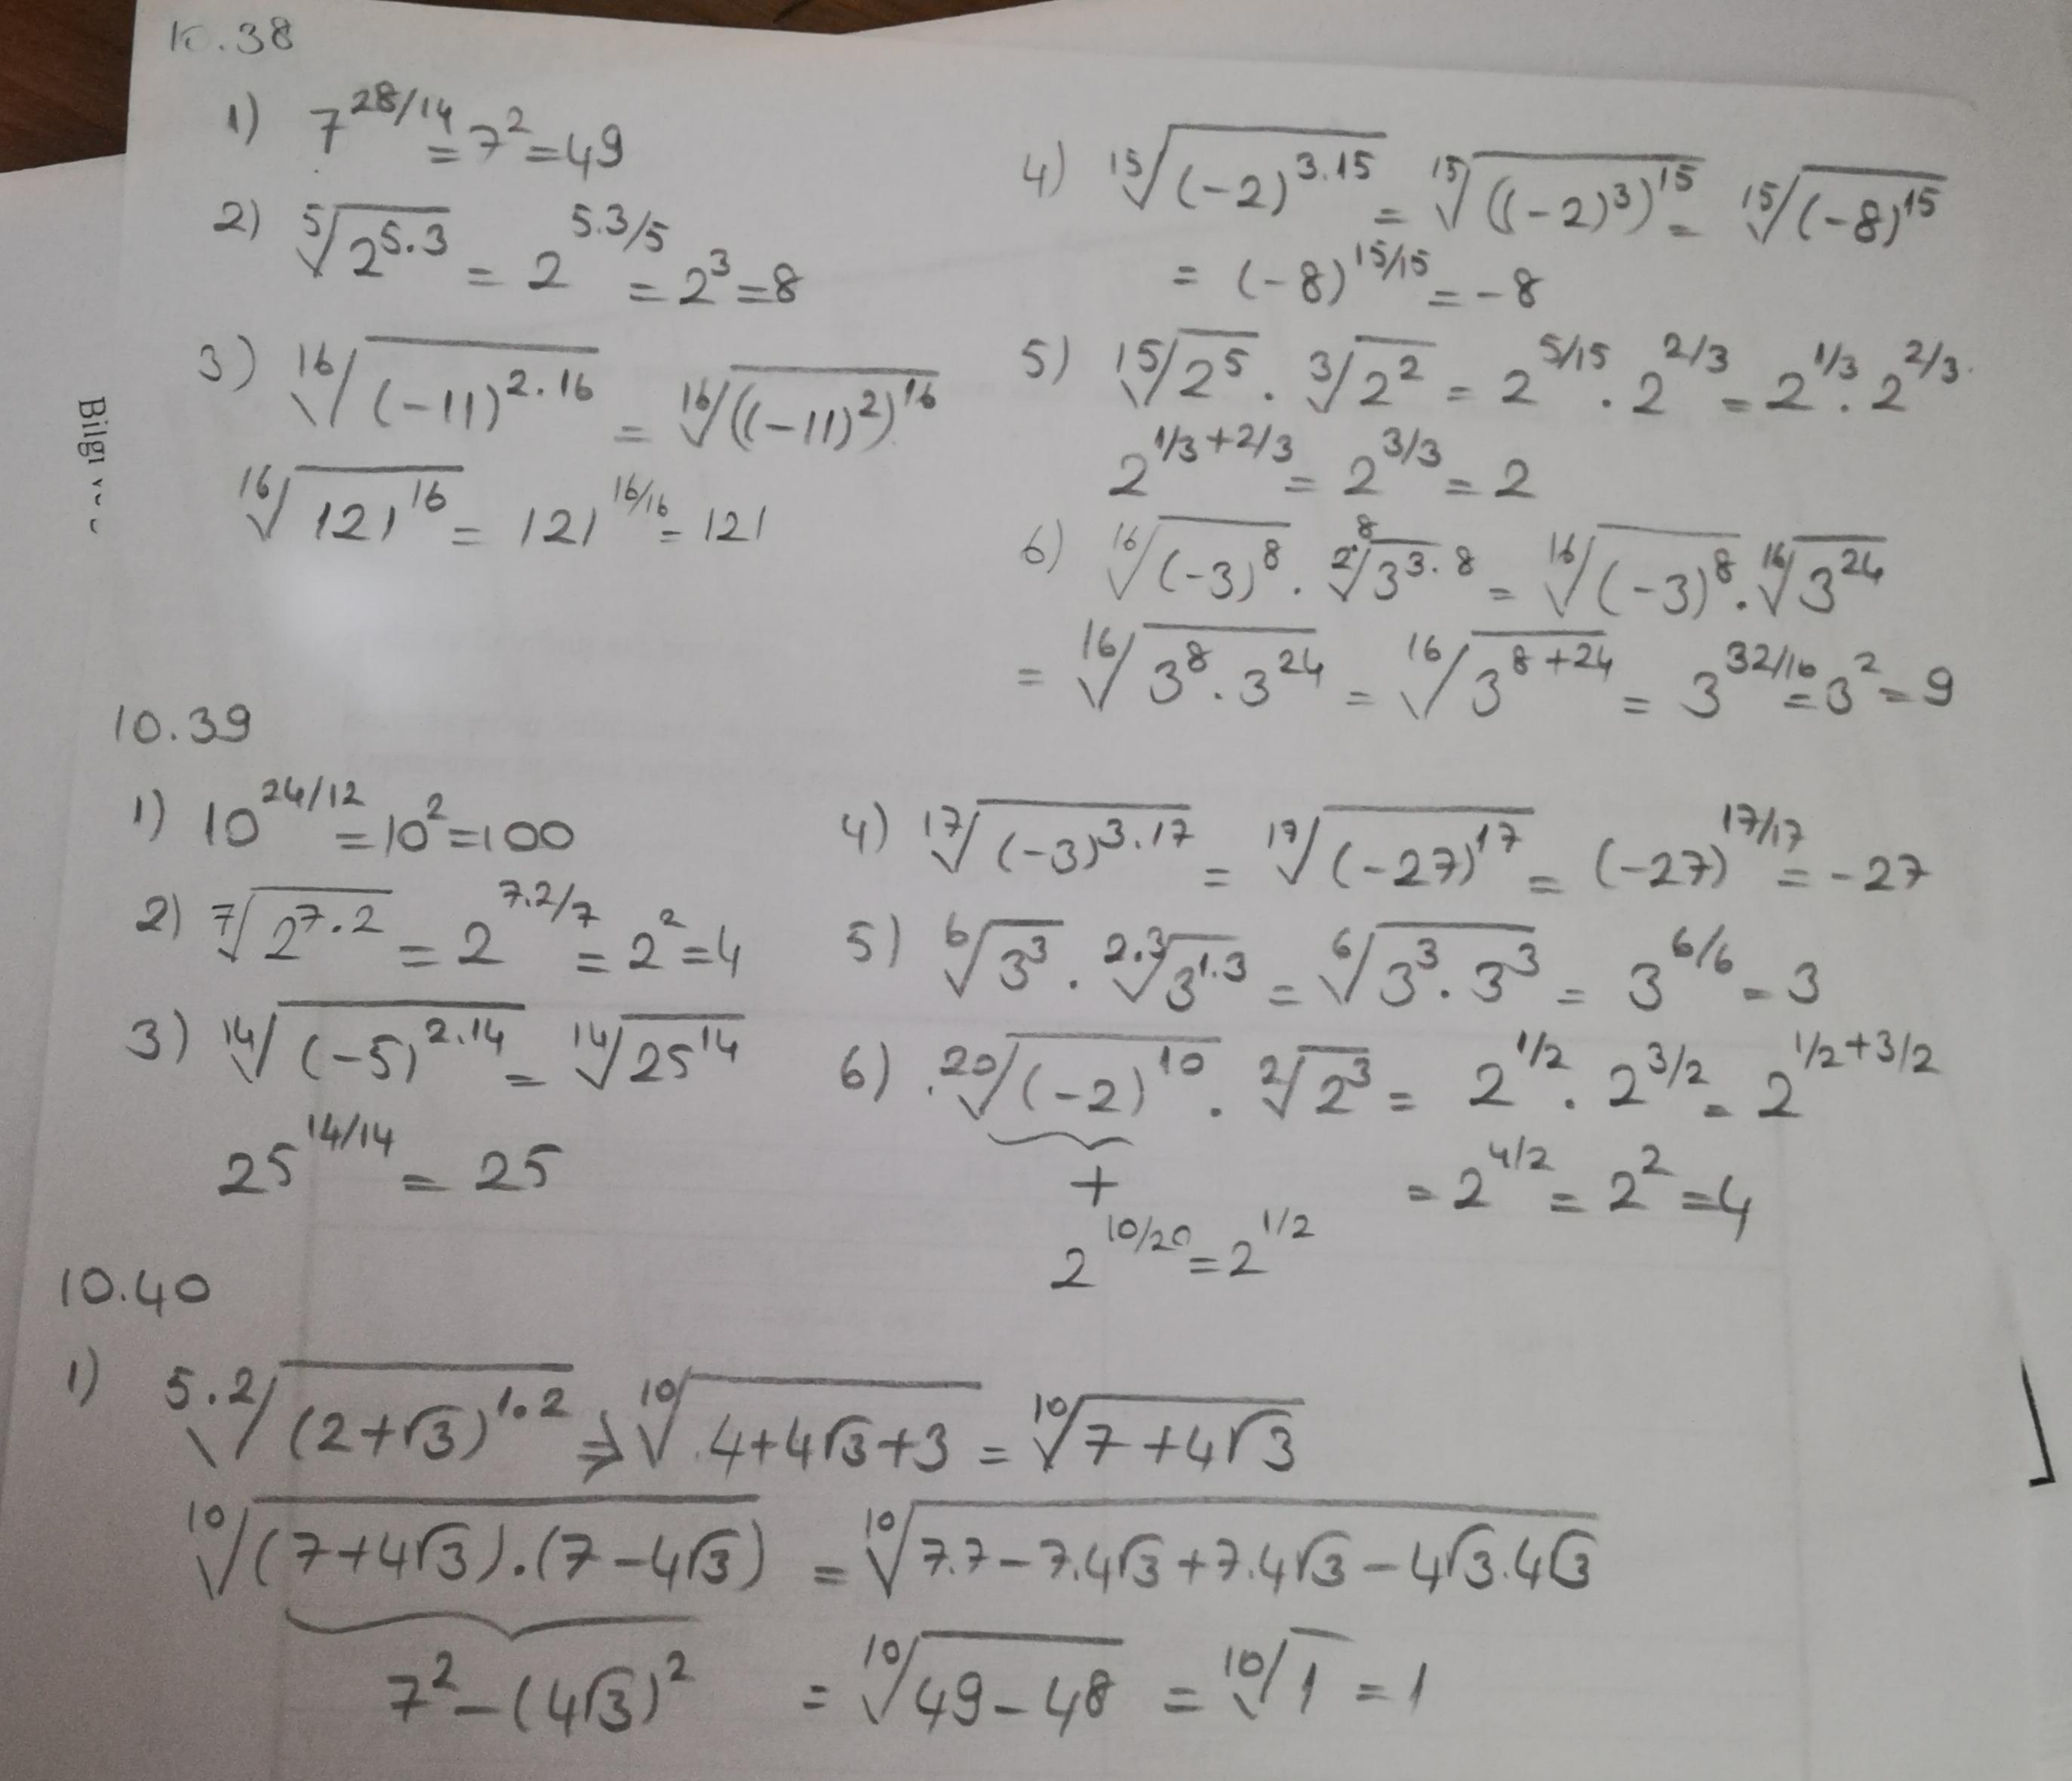 10.38
1) 7^{28/14} = 7^2 = 49
2) \sqrt[5]{2^{5.3}} = 2^{5.3/5} = 2^3 = 8
3) \sqrt[16]{(-11)^{2.16}} = \sqrt[16]{((-11)^2)^{16}}
\sqrt[16]{121^{16}} = 121^{16/16} = 121
4) \sqrt[15]{(-2)^{3.15}} = \sqrt[15]{((-2)^3)^{15}} = \sqrt[15]{(-8)^{15}}
= (-8)^{15/15} = -8
5) \sqrt[15]{2^5} . \sqrt[3]{2^2} = 2^{5/15} . 2^{2/3} = 2^{1/3} . 2^{2/3}
2^{1/3+2/3} = 2^{3/3} = 2
6) \sqrt[16]{(-3)^8} . \sqrt[2.8]{3^{3.8}} = \sqrt[16]{(-3)^8} . \sqrt[16]{3^{24}}
= \sqrt[16]{3^8 . 3^{24}} = \sqrt[16]{3^{8+24}} = 3^{32/16} = 3^2 = 9
Bilgi
10.39
1) 10^{24/12} = 10^2 = 100
2) \sqrt[7]{2^{7.2}} = 2^{7.2/7} = 2^2 = 4
3) \sqrt[14]{(-5)^{2.14}} = \sqrt[14]{25^{14}}
25^{14/14} = 25
4) \sqrt[17]{(-3)^{3.17}} = \sqrt[17]{(-27)^{17}} = (-27)^{17/17} = -27
5) \sqrt[6]{3^3} . \sqrt[2.3]{3^{1.3}} = \sqrt[6]{3^3 . 3^3} = 3^{6/6} = 3
6) \sqrt[20]{(-2)^{10}} . \sqrt[2]{2^3} = 2^{1/2} . 2^{3/2} = 2^{1/2+3/2}
+ = 2^{4/2} = 2^2 = 4
2^{10/20} = 2^{1/2}
10.40
1) \sqrt[5.2]{(2+√3)^{1.2}} ⇒ \sqrt[10]{4+4√3+3} = \sqrt[10]{7+4√3}
\sqrt[10]{(7+4√3).(7-4√3)} = \sqrt[10]{7.7-7.4√3+7.4√3-4√3.4√3}
7^2-(4√3)^2 = \sqrt[10]{49-48} = \sqrt[10]{1} = 1